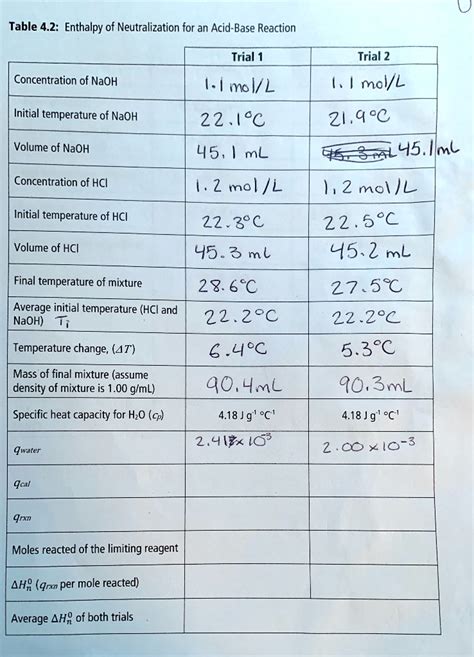 Table 4.2: Enthalpy of Neutralization for an Acid-Base Reaction
Trial 1 Trial 2
Concentration of NaOH 1.1 mol/L 1.1 mol/L
Initial temperature of NaOH 22.1°C 21.9°C
Volume of NaOH 45.1 mL 45.1mL
Concentration of HCl 1.2 mol/L 1.2 mol/L
Initial temperature of HCl 22.3°C 22.5°C
Volume of HCl 45.3 mL 45.2 mL
Final temperature of mixture 28.6°C 27.5°C
Average initial temperature (HCl and
NaOH) Ti 22.2°C 22.2°C
Temperature change, (ΔT) 6.4°C 5.3°C
Mass of final mixture (assume
density of mixture is 1.00 g/mL) 90.4mL 90.3mL
Specific heat capacity for H₂O (cp) 4.18 J g⁻¹ °C⁻¹ 4.18 J g⁻¹ °C⁻¹
qwater 2.41 x 10⁻³ 2.00 x 10⁻³
qcal
qrxn
Moles reacted of the limiting reagent
ΔH⁰n (qrxn per mole reacted)
Average ΔH⁰n of both trials